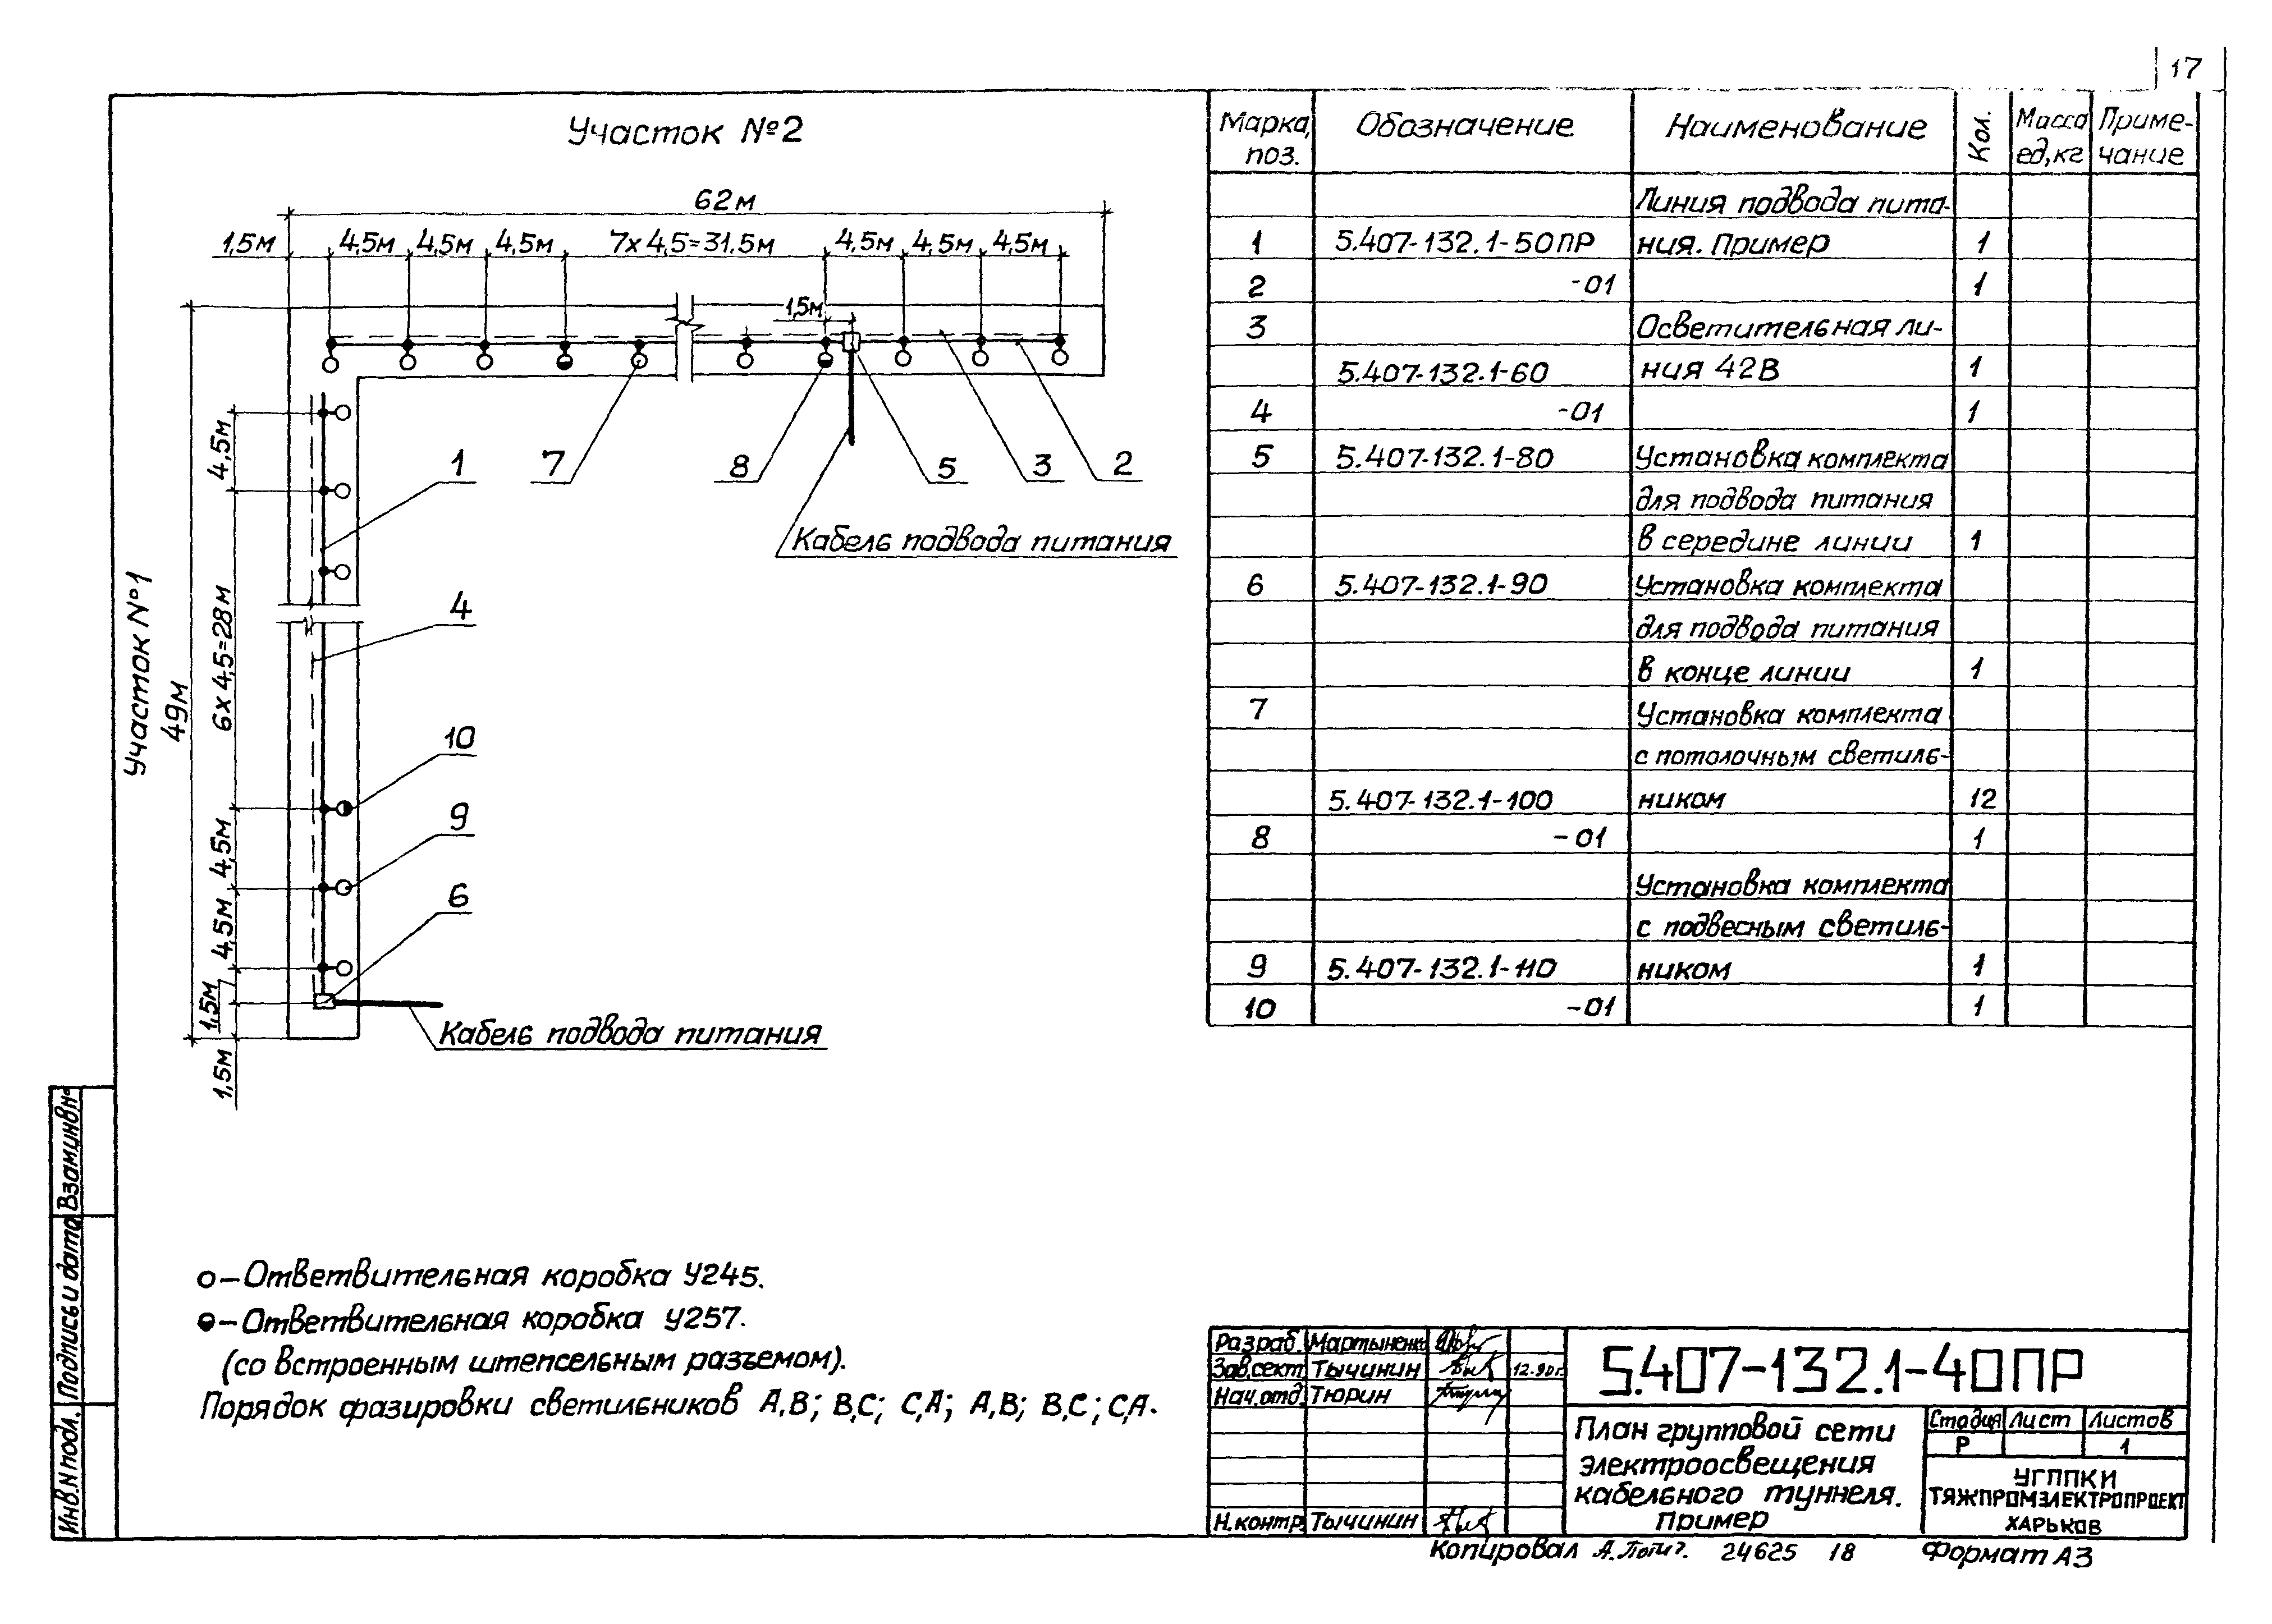 17
Участок №2
62м
1,5м 4,5м 4,5м 4,5м 7х4,5=31.5м 4,5м 4,5м 4,5м
1,5м
7 8 5 3 2
Кабель подвода питания
Участок №1
49м
4,5м
6х4,5=28м
4,5м
4,5м
1,5м
1,5м
1
4
10
9
6
Кабель подвода питания
Марка, поз. Обозначение Наименование Кол. Масса ед,кг Приме-чание
Линия подвода пита-
1 5.407-132.1-50ПР ния. Пример 1
2 -01 1
3 Осветительная ли-
5.407-132.1-60 ния 42В 1
4 -01 1
5 5.407-132.1-80 Установка комплекта
для подвода питания
в середине линии 1
6 5.407-132.1-90 Установка комплекта
для подвода питания
в конце линии 1
7 Установка комплекта
с потолочным светиль-
5.407-132.1-100 ником 12
8 -01 1
Установка комплекта
с подвесным светиль-
9 5.407-132.1-110 ником 1
10 -01 1
– Ответвительная коробка У245.
– Ответвительная коробка У257.
(со встроенным штепсельным разъемом).
Порядок фазировки светильников А,В; В,С; С,А; А,В; В,С; С,А.
Взам.инв№
Подпись и дата
Инв.N подл.
Разраб. Мартыненко
Зав.сект. Тычинин 12.90г.
Нач.отд. Тюрин
Н.контр. Тычинин
5.407-132.1-40ПР
План групповой сети
электроосвещения
кабельного туннеля.
Пример
Стадия Лист Листов
Р 1
УГППКИ
ТЯЖПРОМЭЛЕКТРОПРОЕКТ
ХАРЬКОВ
Копировал 24625 18 Формат А3